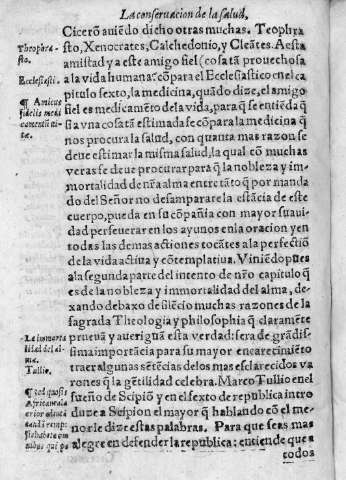 La conseruacion de la salud.
Cicerõ auiẽdo dicho otras muchas. Teophra
sto, Xenocrates, Calchedonio, y Cleãtes. A esta
amistad y a este amigo fiel (cosa tã prouechosa
a la vida humana: cõpara el Ecclesiastico en el ca
pitulo sexto, la medicina, quãdo dize, el amigo
fiel es medicamẽto de la vida, para q̃ se entiẽda q̃
si a vna cosa tã estimada se cõpara la medicina q̃
nos procura la salud, con quanta mas razon se
deue estimar la misma salud, la qual cõ muchas
veras se deue procurar para q̃ la nobleza y im-
mortalidad de nr̃a alma entre tãto q̃ por manda
do del Señor no desamparare la estãcia de este
cuerpo, pueda en su cõpañia con mayor suaui-
dad perseuerar en los ayunos en la oracion y en
todas las demas actiones tocãtes a la perfectiõ
de la vida actiua y cõtemplatiua. Viniẽdo pues
a la segunda parte del intento de nr̃o capitulo q̃
es de la nobleza y immortalidad del alma, de-
xando debaxo de silẽcio muchas razones de la
sagrada Theologia y philosophia q̃ claramẽte
prueuã y aueriguã esta verdad: sera de grãdis-
sima importãcia para su mayor encarecimiẽto
traer algunas sẽtẽcias de los mas esclarecidos va
rones q̃ la gẽtilidad celebra. Marco Tullio en el
sueño de Scipiõ y en el sexto de republica intro
duze a Scipion el mayor q̃ hablando cõ el me-
nor le dize estas palabras. Para que seas mas
alegre en defender la republica: entiende que a
todos
Theophra
sto.
Ecclesiasti.
¶ Amicus
fidelis medi
camentũ ui-
tæ.
La immorta
lidad del al-
ma.
Tullio.